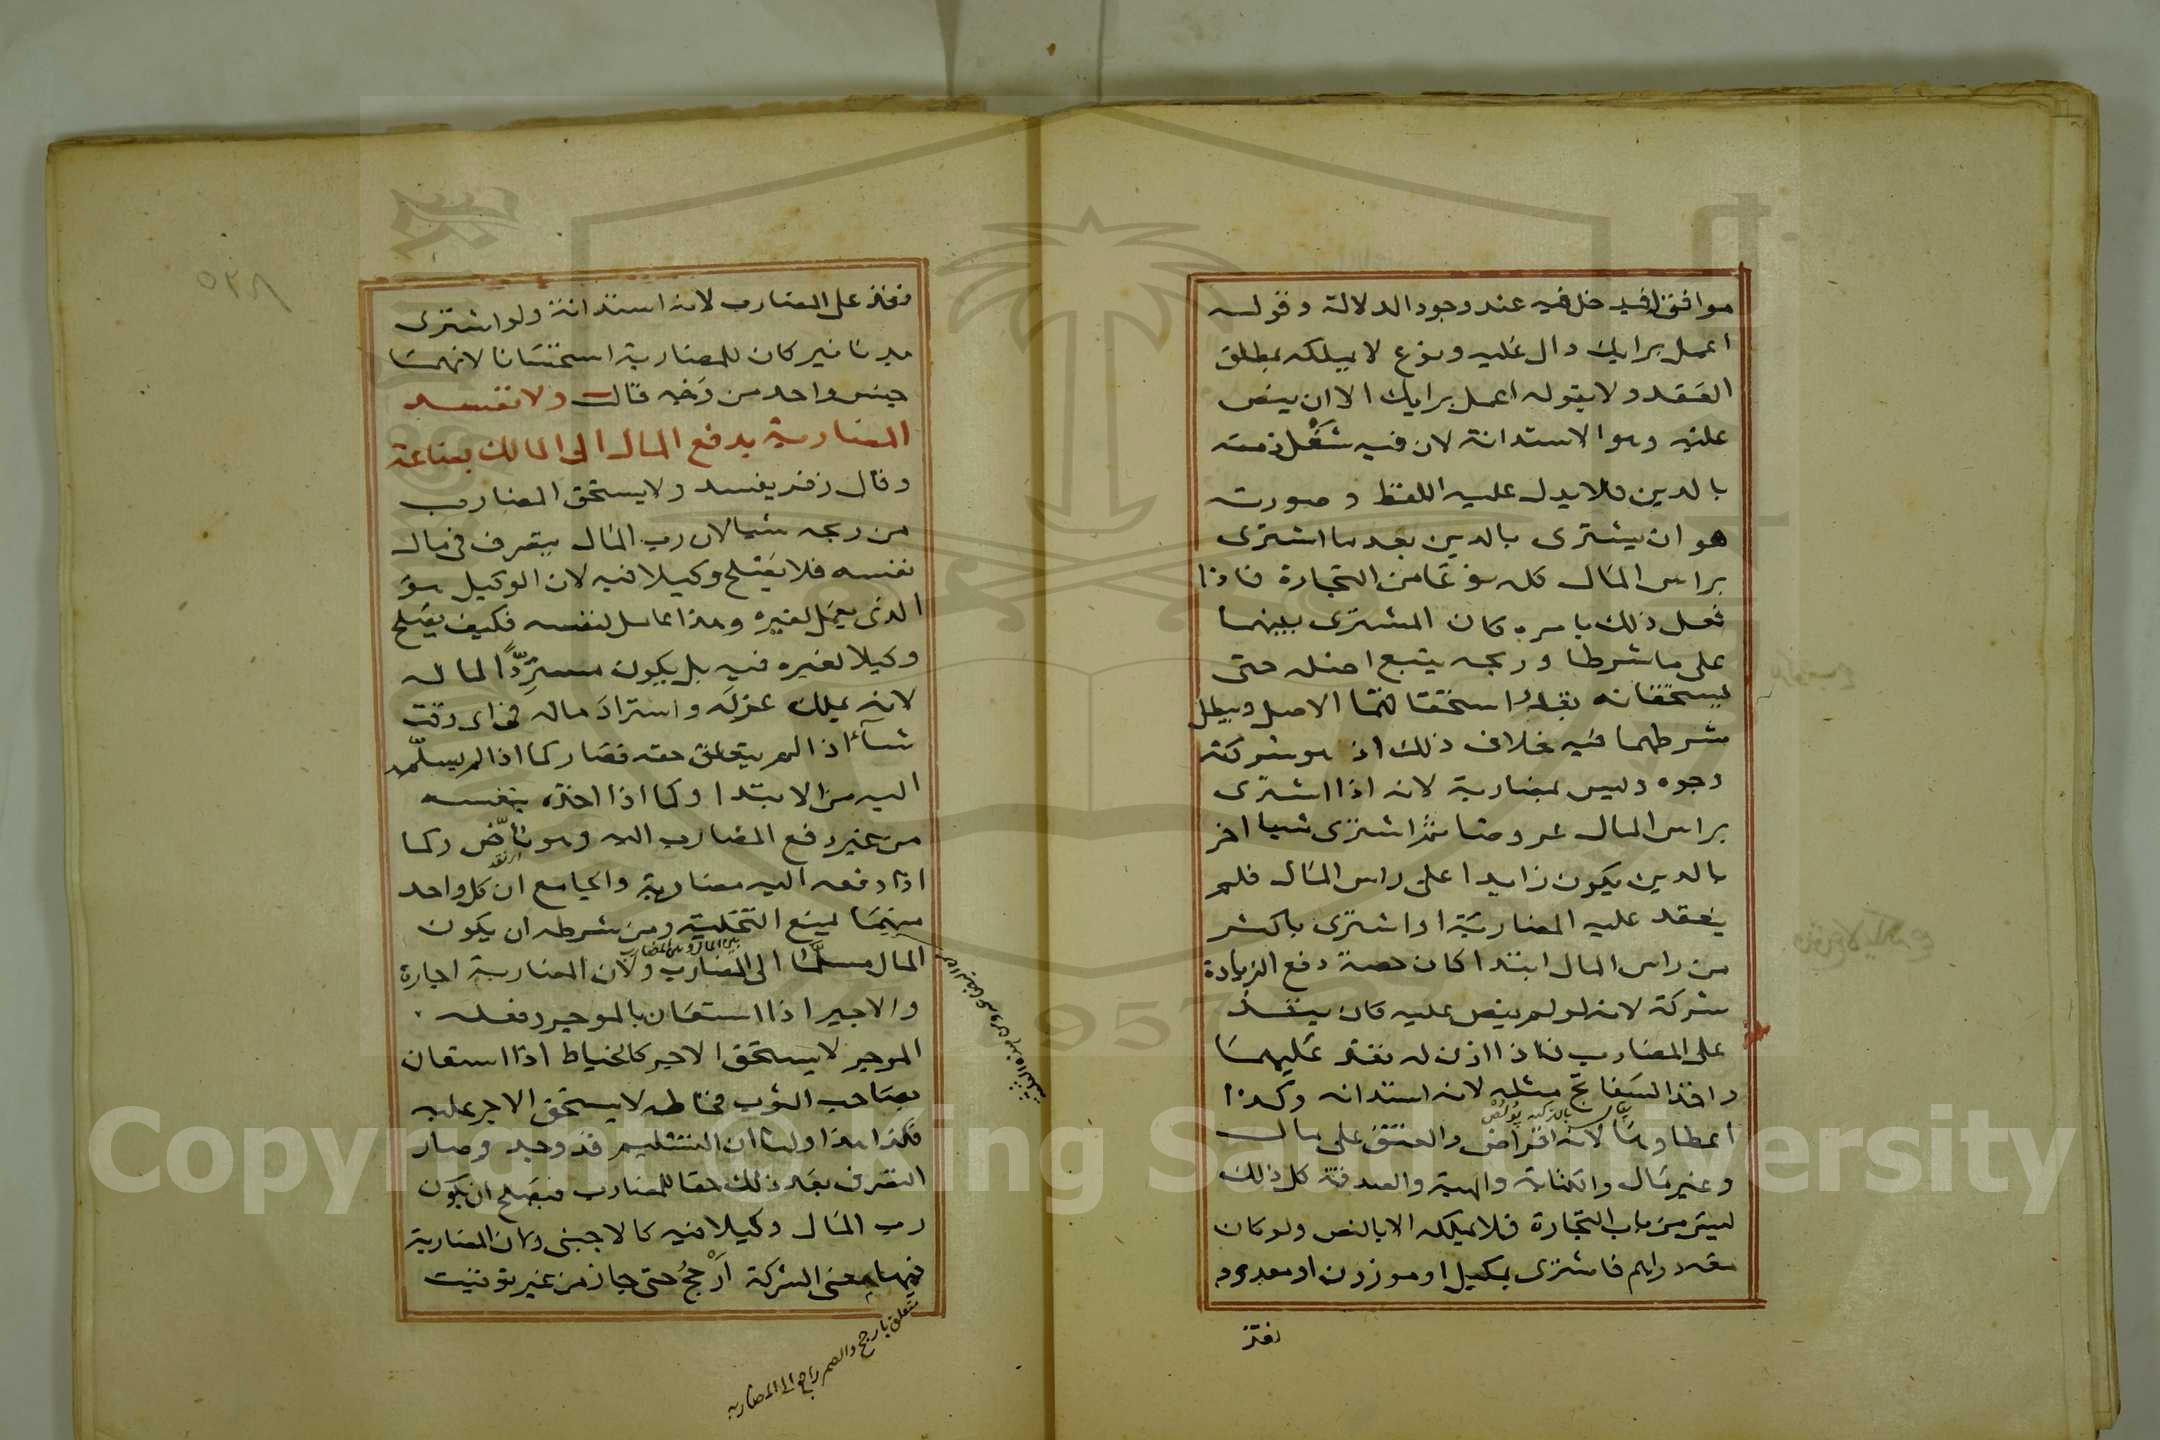 موافق فيدخل فيه عند وجود الدلالة وقوله
اعمل برايك دال عليه ونوع لا يملكه بمطلق
العقد ولا بقوله اعمل برايك الا ان ينص
عليه وهو الاستدانة لان فيه شغل ذمته
بالدين فلا يدل عليه اللفظ وصورته
هو ان يشترى بالدين بعد ما اشترى
براس المال كله نوعا من التجارة فاذا
فعل ذلك بامره كان المشترى بينهما
على ما شرطا وربحه يتبع اصله حتى
يستحقانه بقدر استحقاقهما الاصل ويبطل
شرطهما فيه بخلاف ذلك اذ هو شركة
وجوه وليس بمضاربة لانه اذا اشترى
براس المال عروضا ثم اشترى شيا اخر
بالدين يكون زايدا على راس المال فلم
ينعقد عليه المضاربة او اشترى باكثر
من راس المال ابتدا كان حصة دفع الزيادة
شركة لانه لو لم ينص عليه كان ينفذ
على المضارب فاذا اذن له نفذ عليهما
واخذ السفاتج مثله لانه استدانه وكذا
اعطاوها لانه اقراض والعتق على مال
وغير مال والكتابة والهبة والصدقة كل ذلك
ليس من باب التجارة فلا يملكه الا بالنص ولو كان
معه دراهم فاشترى بمكيل او موزون او معدود
نفذ
٥٢٨
نفذ على المضارب لانه استدانة ولو اشترى
بدنانير كان للمضاربة استحسانا لانهما
جنس واحد من وجه قال ولا تفسد
المضاربة بدفع المال الى المالك بضاعة
وقال زفر يفسد ولا يستحق المضارب
من ربحه شيا لان رب المال يتصرف فى مال
نفسه فلا يصلح وكيلا فيه لان الوكيل هو
الذى يعمل لغيره وهذا عامل لنفسه فكيف يصلح
وكيلا لغيره فيه بل يكون مستردا لماله
لانه يملك عزله واسترداد ماله فى اى وقت
شاء اذا لم يتعلق حقه فصار كما اذا لم يسلم
اليه من الابتدا وكما اذا اخذه بنفسه
من غير دفع المضارب اليه وهو ناض وكما
اى نقد
اذا دفعه اليه مضاربة والجامع ان كل واحد
منهما يمنع التخلية ومن شرطه ان يكون
بين المال وبين المضارب
المال مسلما الى المضارب ولان المضاربة اجارة
والاجير اذا استعان بالموجير وفعله
الموجير لا يستحق الاجر كالخياط اذا استعان
بصاحب الثوب فخاطه لا يستحق الاجر عليه
فكذا هذا ولنا ان التسليم قد وجد وصار
التصرف بعد ذلك حقا للمضارب فيصلح ان يكون
رب المال وكيلا فيه كالاجنبى ولان المضاربة
فيها معنى الشركة ارجح حتى جاز من غير توقيت
متعلق بارجح والضمير راجع الى المضاربه
Copyright © King Saud University
1957